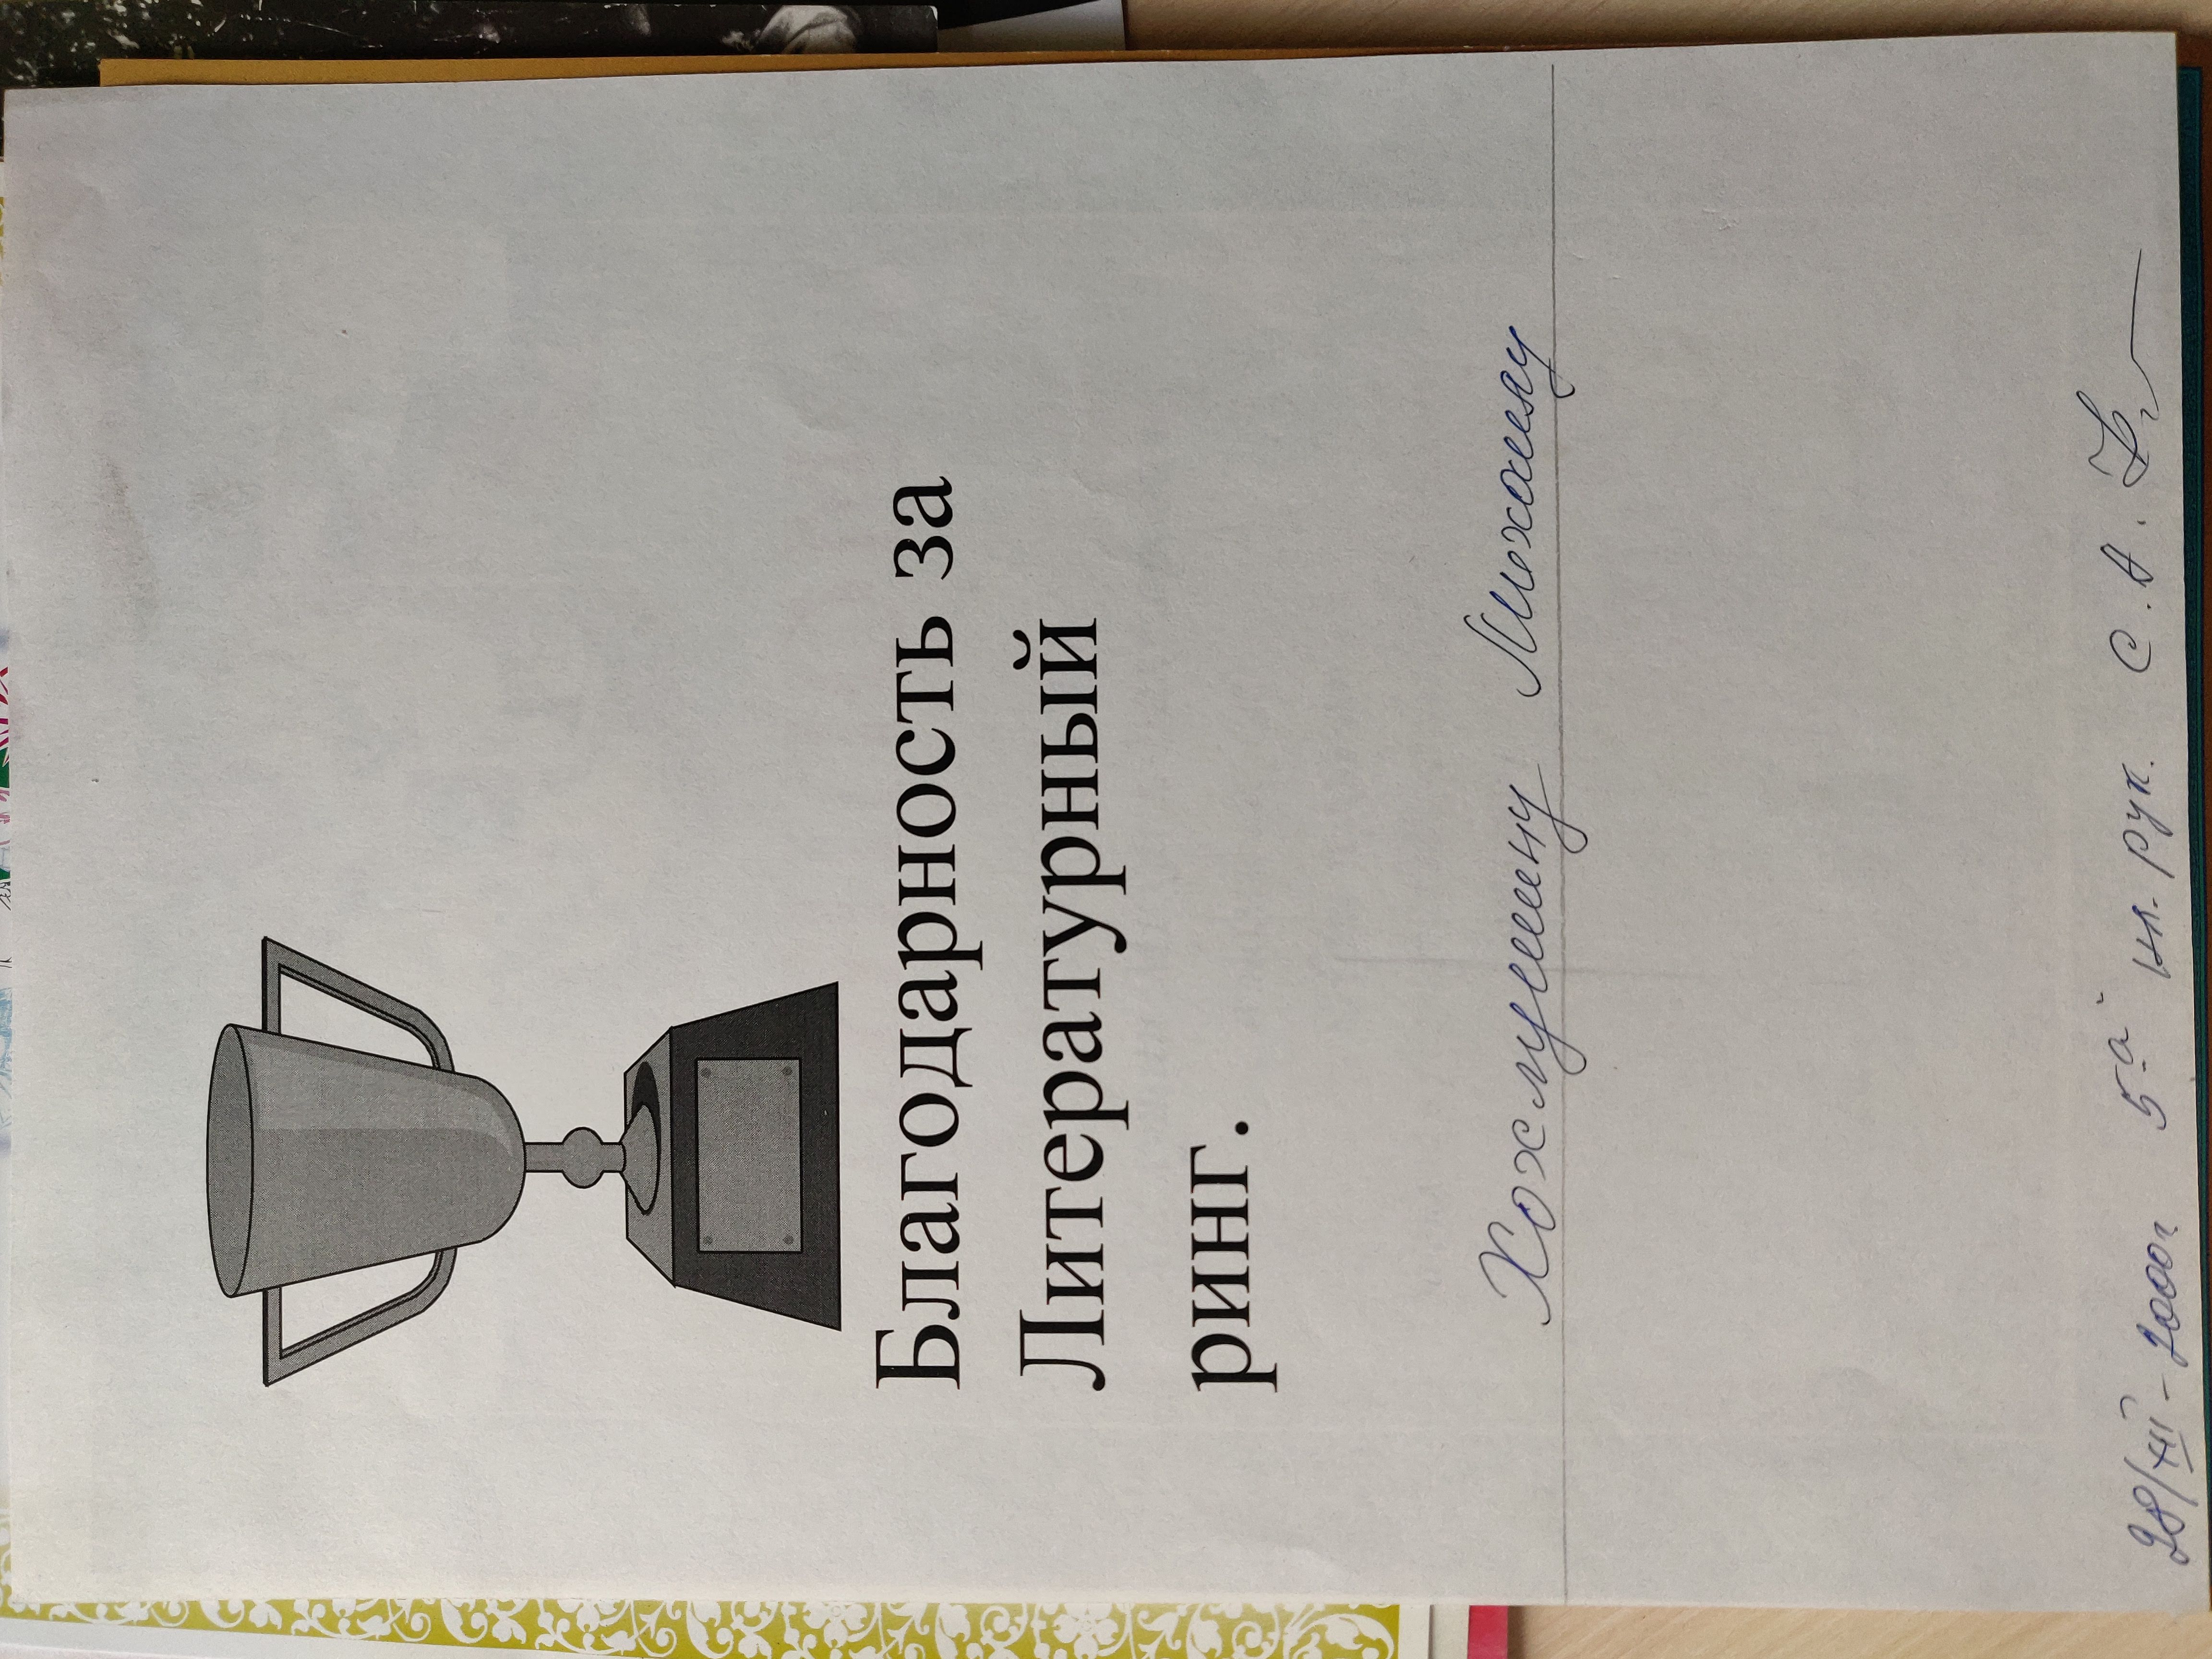 Благодарность за
Литературный
ринг.
Хохлушину Михаилу
28/XII - 2000г 5а кл. рук. С. А.